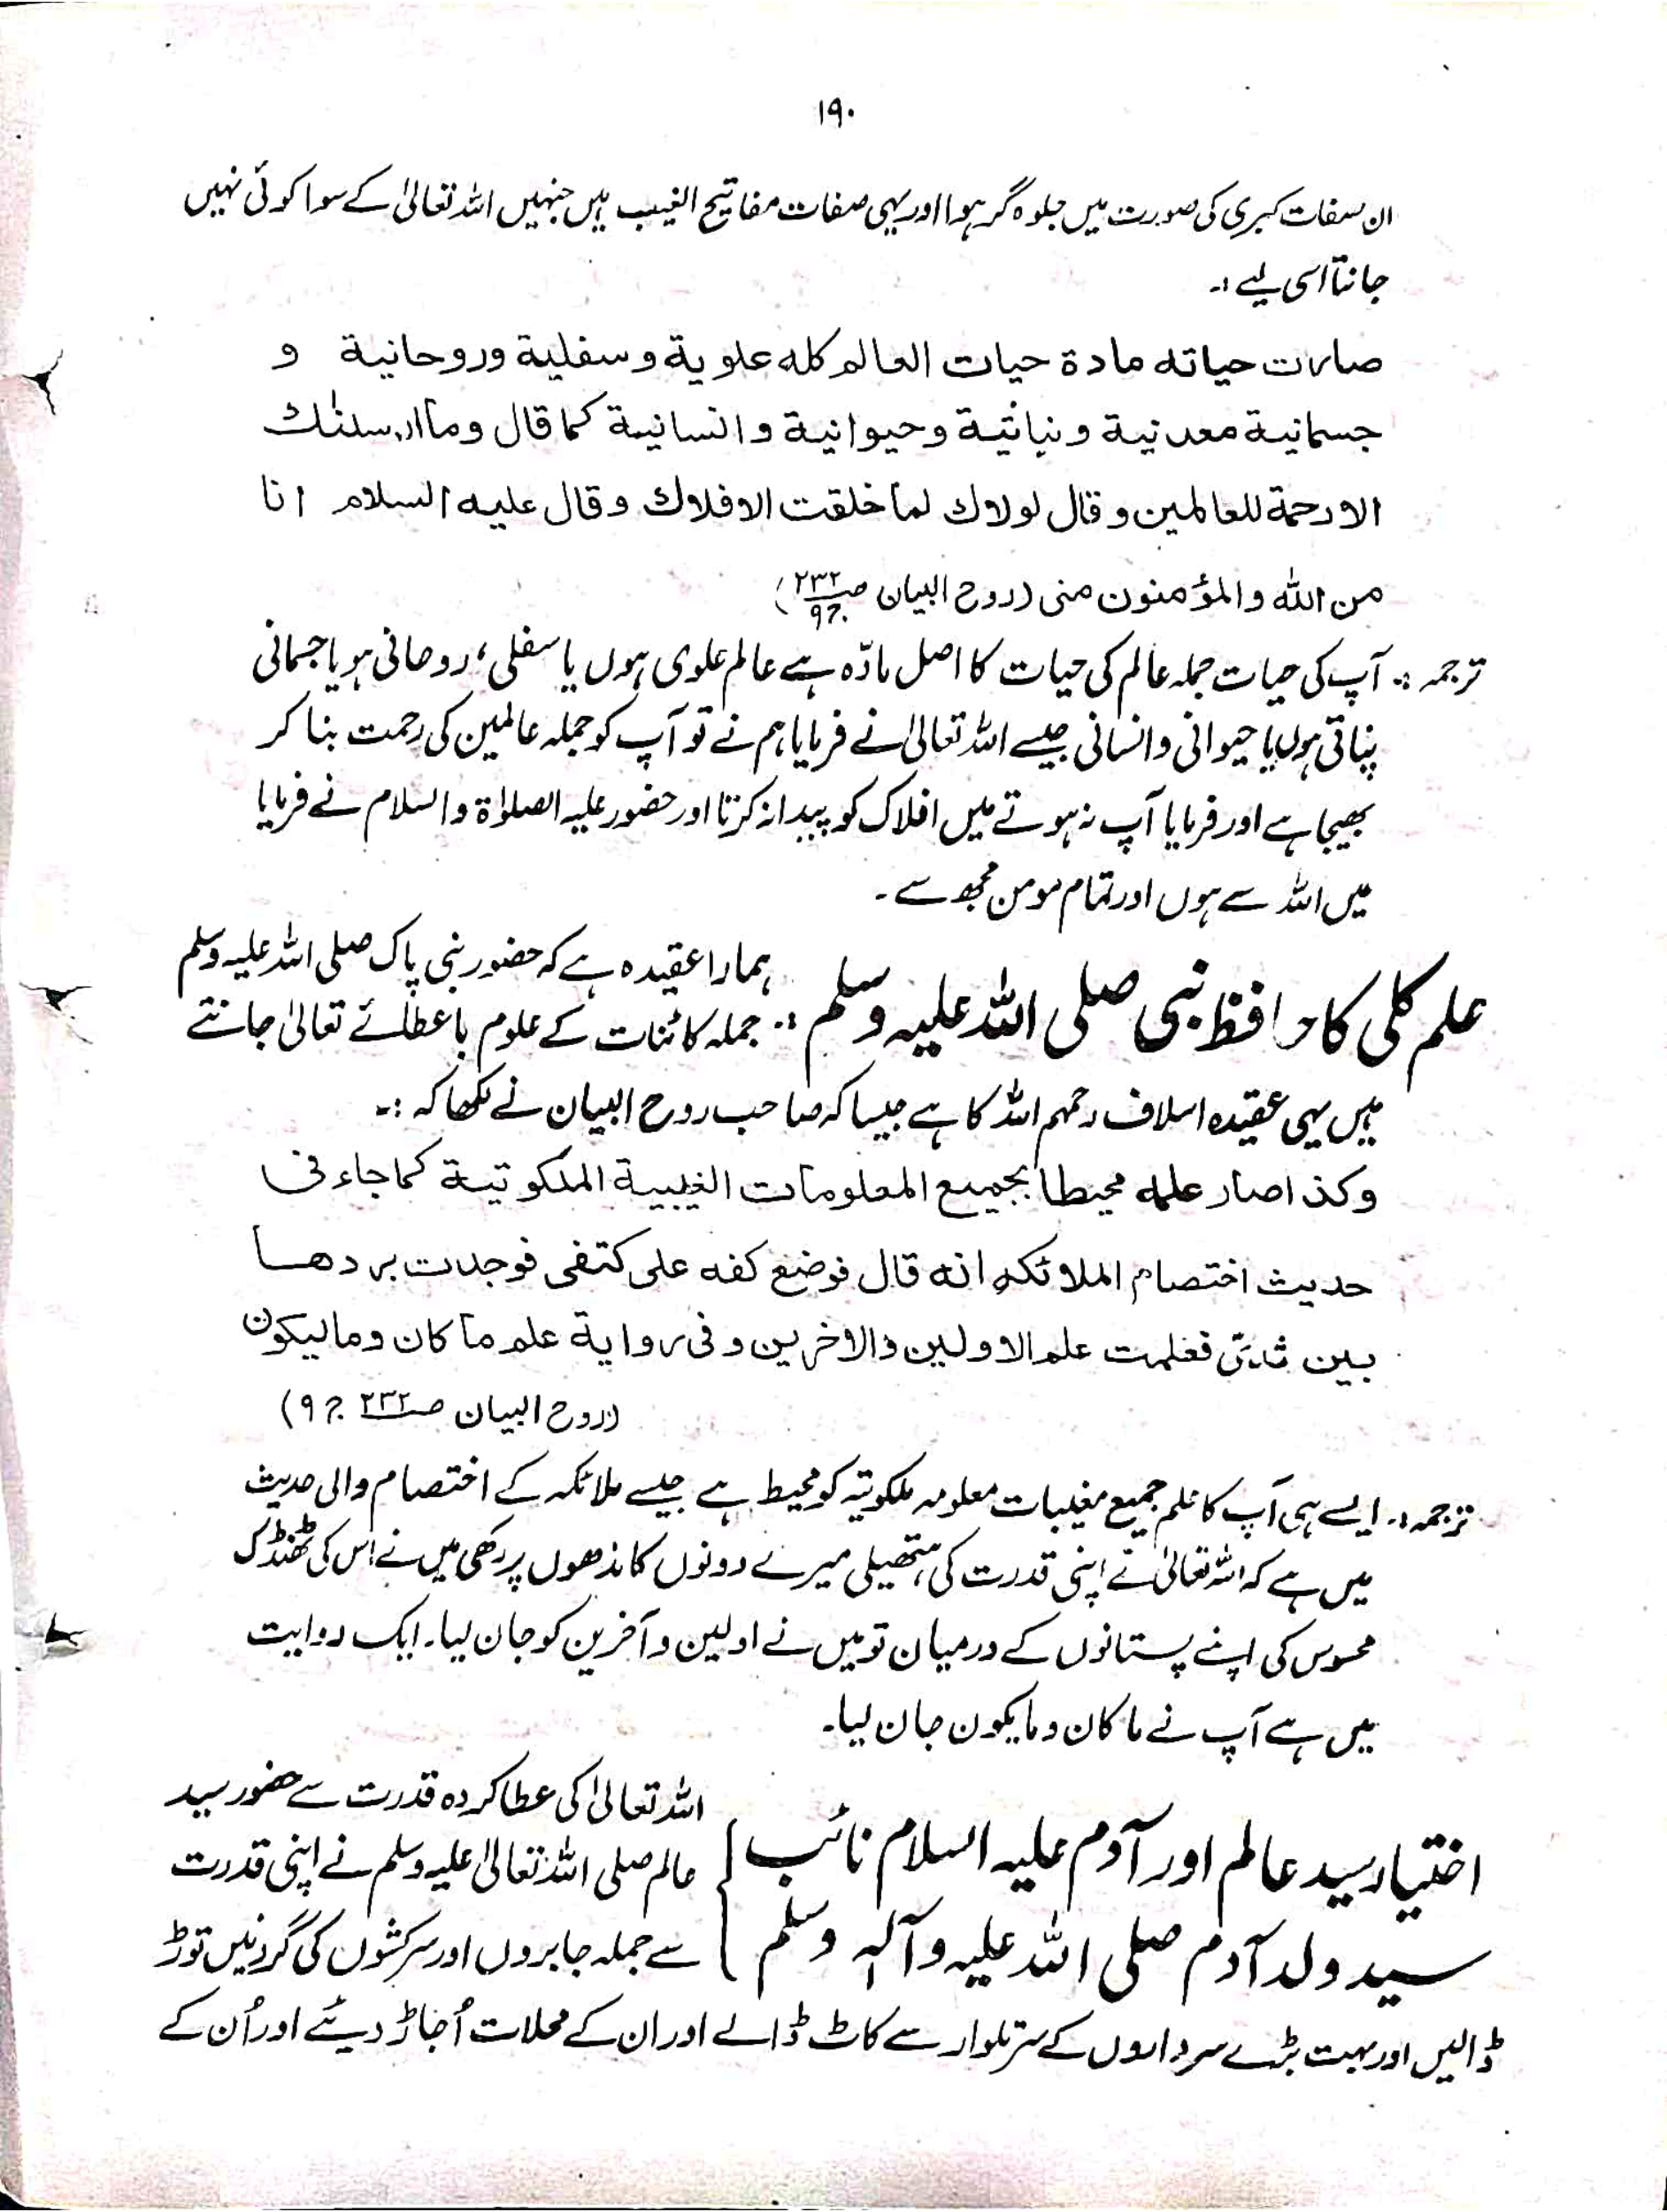 ۱۹۰
ان صفات کبریٰ کی صورت میں جلوہ گر ہوا اور یہی صفات مفاتیح الغیب ہیں جنہیں اللہ تعالیٰ کے سوا کوئی نہیں
جانتا اسی لیے :۔
صارت حیاته مادة حیات العالم کله علویة وسفلیة وروحانیة و
جسمانیة معدنیة ونباتیة وحیوانیة وانسانیة کما قال وما ارسلنٰك
الا رحمة للعالمین وقال لولاك لما خلقت الافلاك وقال علیه السلام انا
من الله والمؤمنون منی (روح البیان ص۲۳۲ ج۹)
ترجمہ :۔ آپ کی حیات جملہ عالم کی حیات کا اصل مادّہ ہے عالم علوی ہوں یا سفلی، روحانی ہو یا جسمانی
نباتی ہوں یا حیوانی و انسانی جیسے اللہ تعالیٰ نے فرمایا ہم نے تو آپ کو جملہ عالمین کی رحمت بنا کر
بھیجا ہے اور فرمایا آپ نہ ہوتے میں افلاک کو پیدا نہ کرتا اور حضور علیہ الصلوٰۃ والسلام نے فرمایا
میں اللہ سے ہوں اور تمام مومن مجھ سے ۔
علم کلی کا حافظ نبی صلی اللہ علیہ وسلم :۔ ہمارا عقیدہ ہے کہ حضور نبی پاک صلی اللہ علیہ وسلم
جملہ کائنات کے علوم باعطائے تعالیٰ جانتے
ہیں یہی عقیدہ اسلاف رحمہم اللہ کا ہے جیسا کہ صاحب روح البیان نے لکھا کہ :۔
وکذا صار علمه محیطا بجمیع المعلومات الغیبیة الملکوتیة کما جاء فی
حدیث اختصام الملائکه انه قال فوضع کفه علی کتفی فوجدت بردها
بین ثدیّ فعلمت علم الاولین والاخرین وفی روایة علم ما کان وما لیکون
(روح البیان ص۲۳۲ ج۹)
ترجمہ :۔ ایسے ہی آپ کا علم جمیع مغیبات معلومہ ملکوتیہ کو محیط ہے جیسے ملائکہ کے اختصام والی حدیث
میں ہے کہ اللہ تعالیٰ نے اپنی قدرت کی ہتھیلی میرے دونوں کاندھوں پر رکھی میں نے اس کی ٹھنڈک
محسوس کی اپنے پستانوں کے درمیان تو میں نے اولین و آخرین کو جان لیا۔ ایک روایت
میں ہے آپ نے ما کان وما یکون جان لیا۔
اختیار سید عالم اور آدم علیہ السلام نائب
سید ولد آدم صلی اللہ علیہ وآلہ وسلم
اللہ تعالیٰ کی عطا کردہ قدرت سے حضور سید
عالم صلی اللہ تعالیٰ علیہ وسلم نے اپنی قدرت
سے جملہ جابروں اور سرکشوں کی گردنیں توڑ
ڈالیں اور بہت بڑے سرداروں کے سر تلوار سے کاٹ ڈالے اور ان کے محلات اُجاڑ دیئے اور اُن کے